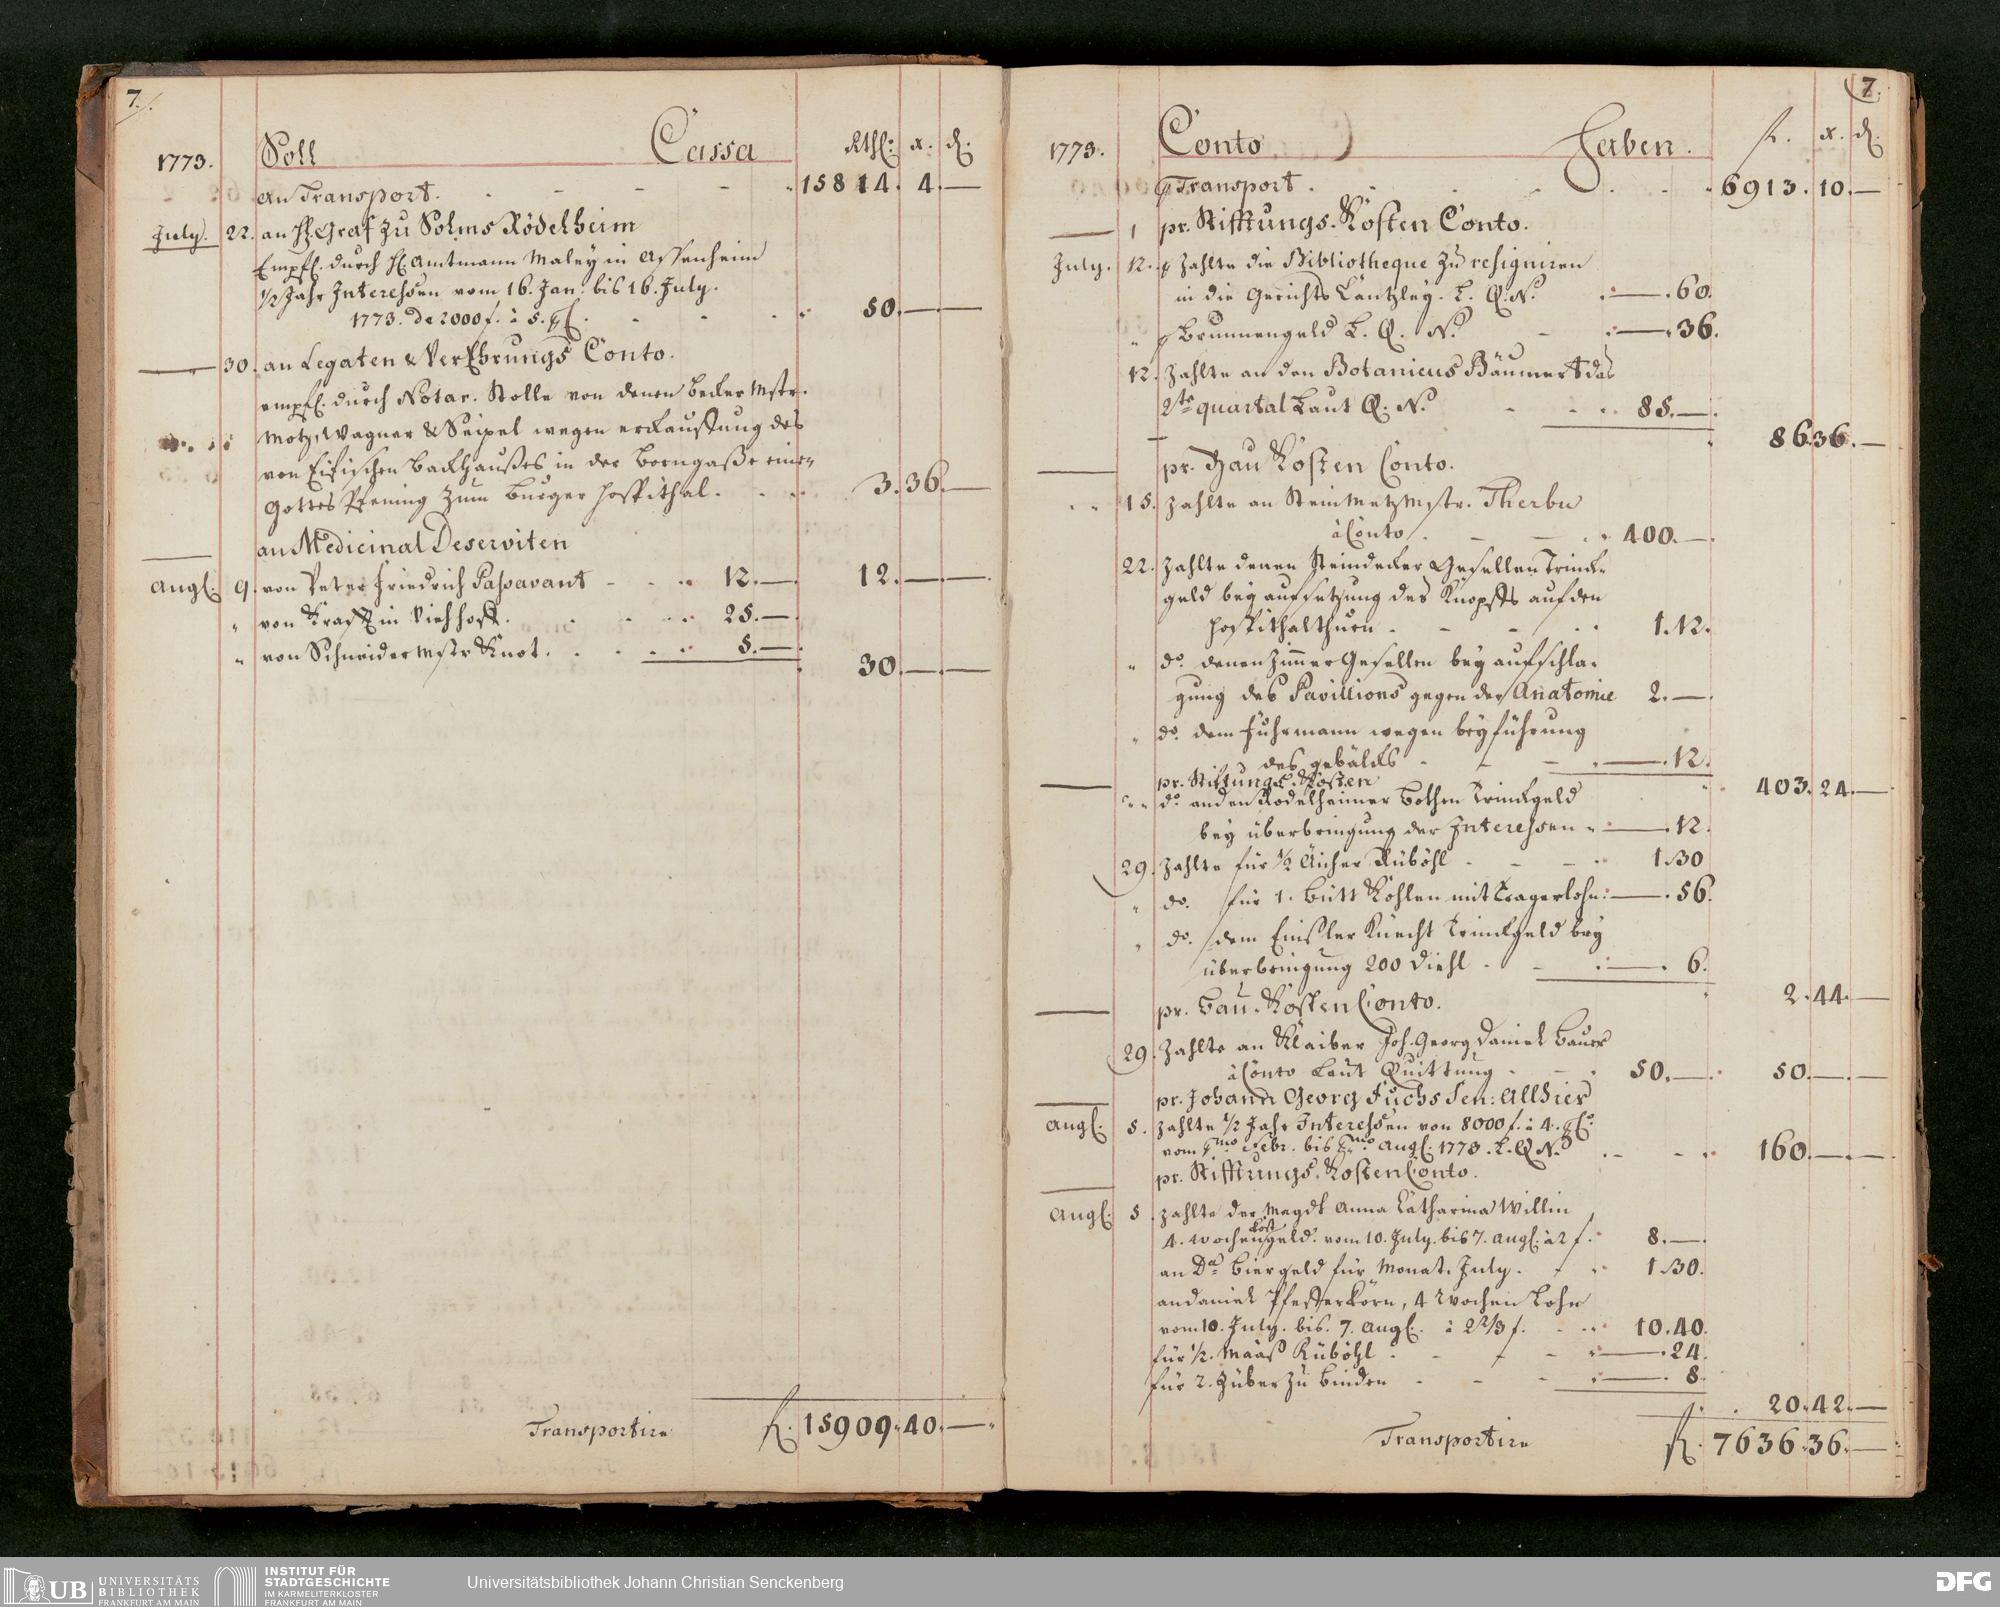 7.
1773. Soll Cassa Rthl: x. d.
an Transport. 15814. 4. —
July. 22. an H. Graf zu Solms Rödelheim
Empf. durch H. Amtmann Maley in Assenheim
1/2 Jahr Interessen vom 16. Jan. bis 16. July.
1773. de 2000 f. à 5. 50. — —
30. an Legaten & Verehrungs Conto.
empf. durch Notar. Stolle von denen Becker Mstr.
Motz, Wagner & Seipel wegen erkauffung des
von Eisischen Backhaußes in der Borngaße eine
Gottes Pfening zum Burger Hospithal. 3. 36. —
an Medicinal Deserviten
Aug. 9. von Peter Friedrich Passavant 12. — 12. — —
" von Krafft in Viehhoff. 25. —
" von Schneider Mstr Knot. 5. —
30. — —
Transportire f. 15909. 40. —
7.
1773. Conto Haben. f. x. d.
Transport. 6913. 10. —
1 pr. Stifftungs. Kosten Conto.
July. 12. Zahlte die Bibliotheque zu resigniren
in die Gerichts Cantzley. L. Q. No. — . 60.
" Brunnengeld L. Q. No. — . 36.
12. Zahlte an den Botanicus Bäumert das
2te quartal Laut Q. No. 85. —
86. 36. —
pr. Bau Kosten Conto.
15. Zahlte an Steinmetz Mstr. Therbu
à Conto 400. —
22. Zahlte denen Steindecker Gesellen Trinck-
geld bey auffsetzung des Knopffs auf den
Hospithalthurn 1. 12.
" do. denen Zimmer Gesellen bey aufschla-
gung des Pavillions gegen der Anatomie 2. —
" do. dem Fuhrmann wegen beyführung
des gebälcks — . 12.
pr. Stiftungs. Kosten 403. 24. —
" do. an den Rödelheimer Bothen Trinckgeld
bey überbringung der Interessen — . 12.
29. Zahlte für 1/2 Aicher Rüböhl 1. 30
" do. für 1. Butt Kohlen mit Tragerlohn — . 56.
" do. dem Einßler Knecht Trinckgeld bey
überbringung 200 Diehl — . 6.
2. 44. —
pr. Bau. Kosten Conto.
29. Zahlte an Klaiber Joh. Georg Daniel Bauer
à Conto Laut Quittung 50. — 50. — —
pr. Johann Georg Fuchs Sen: Allhier
Aug. 5. zahlte 1/2 Jahr Interessen von 8000 f. à 4.
vom 5mo Febr. bis 5mo Aug. 1773. L. Q No. 160. — —
pr. Stifftungs. Kosten Conto.
Aug. 5. zahlte der Magdt Anna Catharina Willin
4. Wochen Kostgeld. vom 10. July. bis 7. Aug. à 2 f. 8. —
an Da. Biergeld für Monat. July. 1. 30.
an Daniel Pfefferkorn, 4 Wochen Lohn
vom 10. July. bis. 7. Aug. à 2 2/3 f. 10. 40.
für 1/2. Maaß Rüböhl — . 24.
für 2. Züber zu binden — . 8.
20. 42. —
Transportire f. 7636. 36. —
UB UNIVERSITÄTS
BIBLIOTHEK
FRANKFURT AM MAIN
INSTITUT FÜR
STADTGESCHICHTE
IM KARMELITERKLOSTER
FRANKFURT AM MAIN
Universitätsbibliothek Johann Christian Senckenberg
DFG